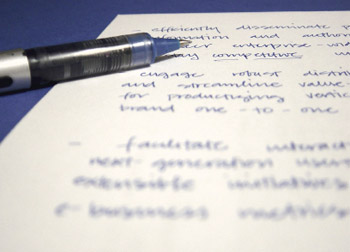 efficiently disseminate
information and
enterprise-
day competitive
engage robust
and streamline value-
for productizing
brand one-to-one
- facilitate
next-generation users
extensible initiatives
e-business metrics